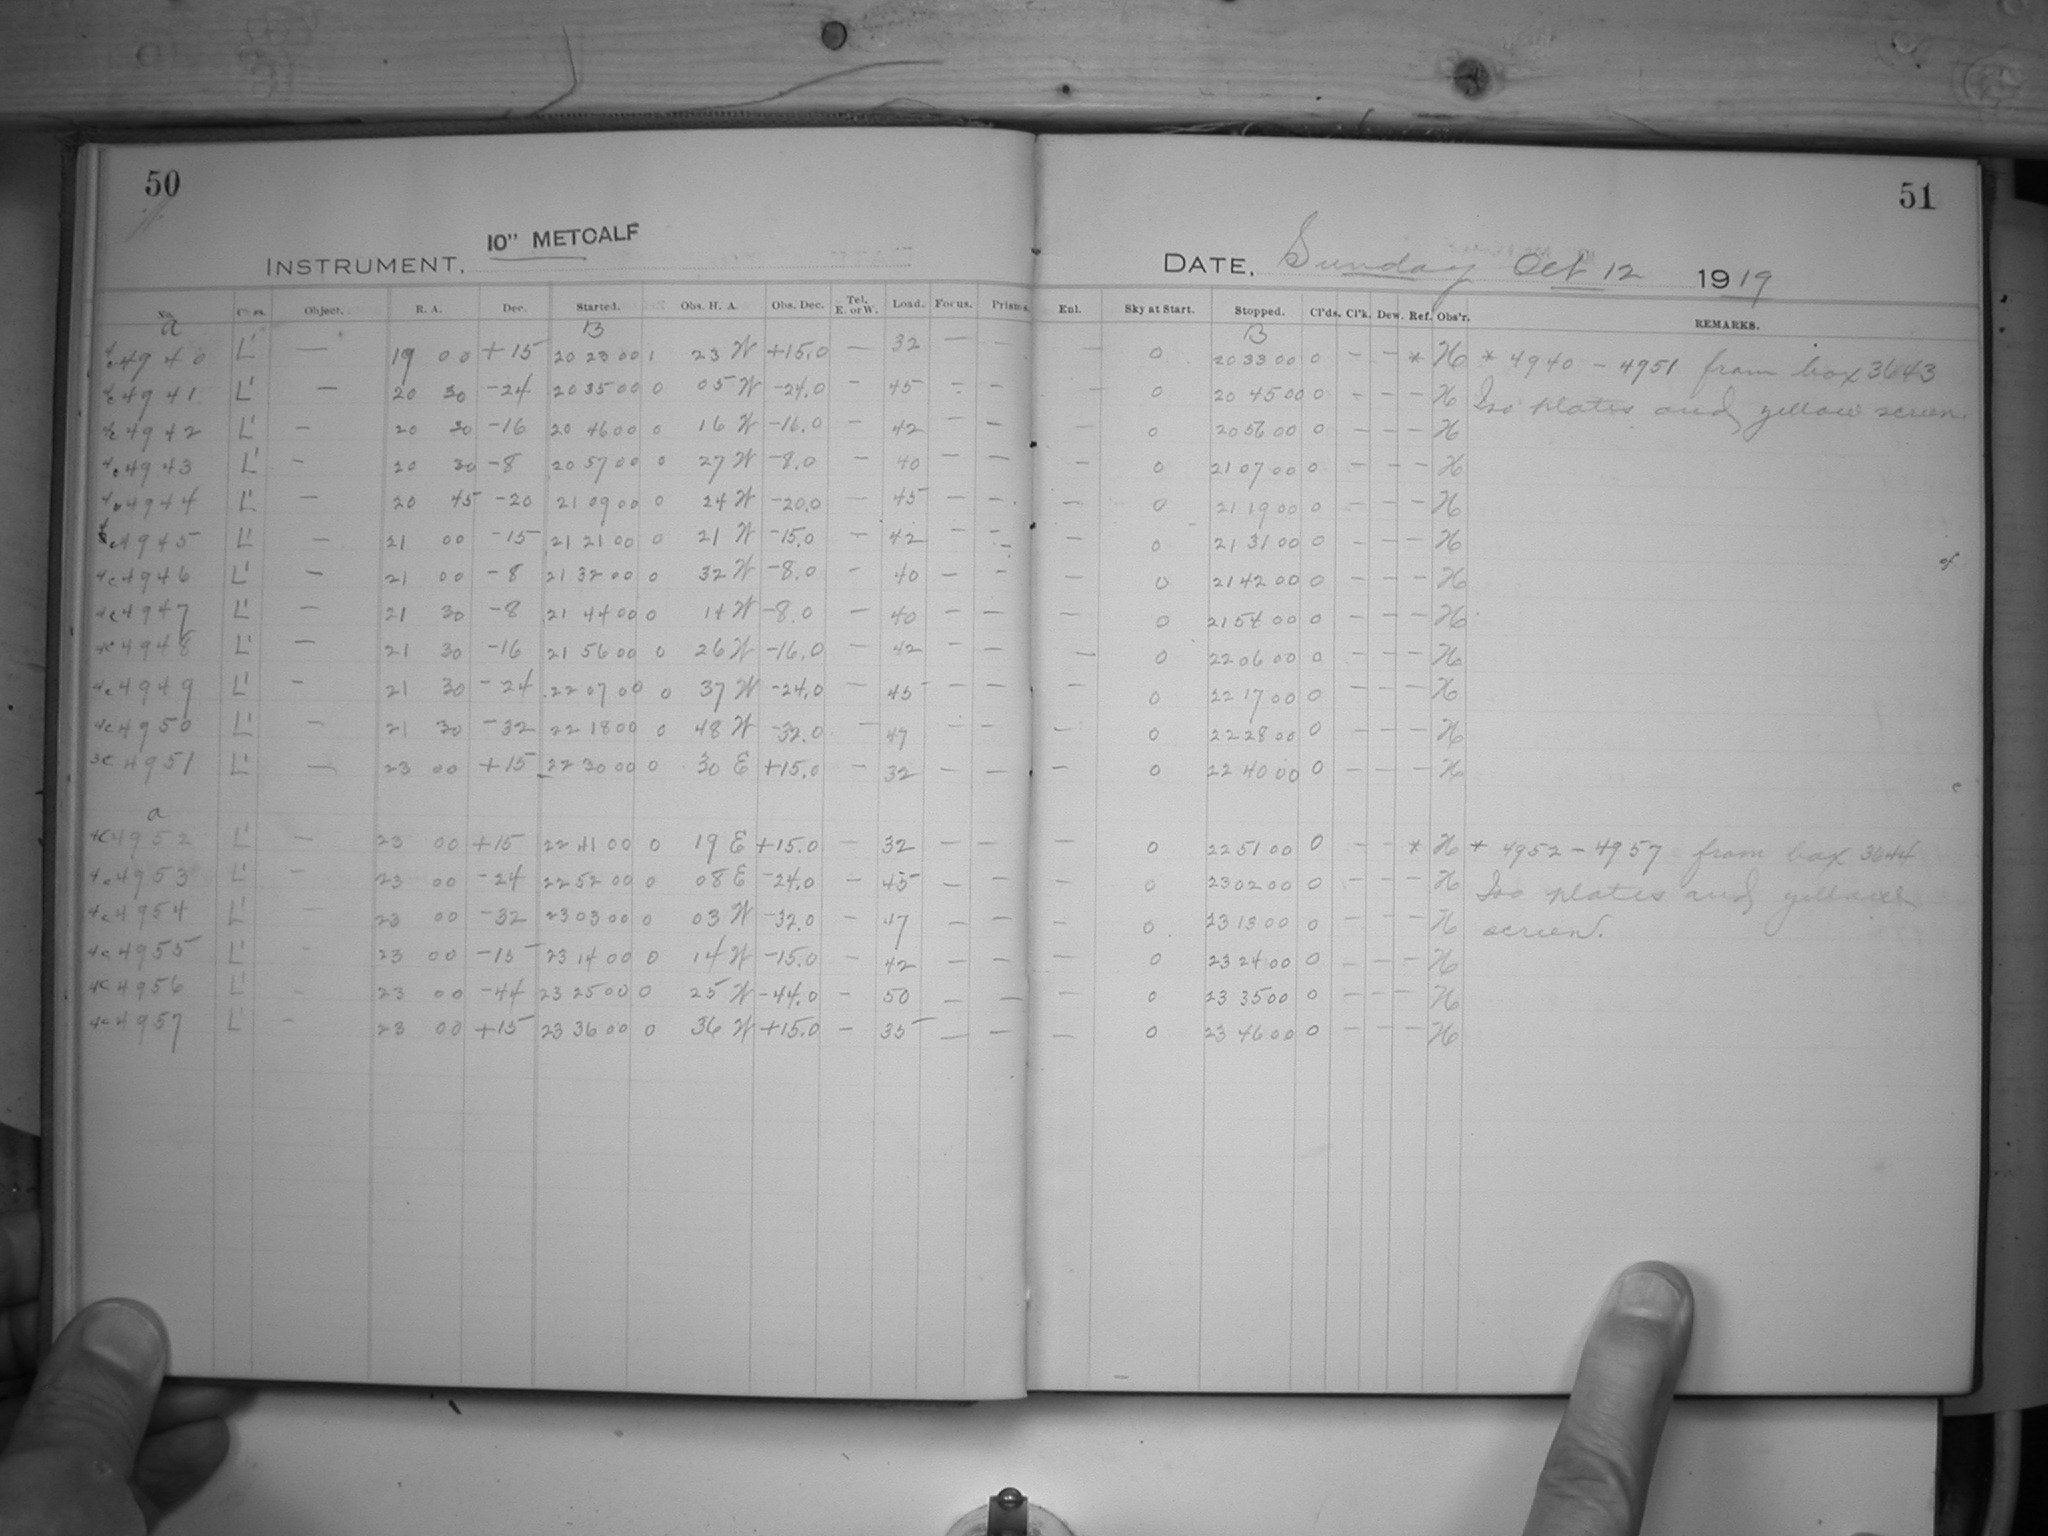 50
51
10" METCALF
INSTRUMENT.
DATE. Sunday Oct 12 1919
No. Object. R. A. Dec. Started. Obs. H. A. Obs. Dec. Tel. E. or W. Load. Focus. Prism. Enl. Sky at Start. Stopped. Cl'ds. Cl'k. Dew. Ref. Obs'r. REMARKS.
a B B
4c 4940 L' — 19 00 +15 20 23 00 1 23 W +15.0 — 32 — — 0 20 33 00 0 — — * H * 4940 - 4951 from box 3643
4c 4941 L' — 20 30 -24 20 35 00 0 05 W -24.0 — 45 — — — 0 20 45 00 0 — — — H Iso plates and yellow screen.
4c 4942 L' — 20 30 -16 20 46 00 0 16 W -16.0 — 42 — — — 0 20 56 00 0 — — — H
4c 4943 L' — 20 30 -8 20 57 00 0 27 W -8.0 — 40 — — — 0 21 07 00 0 — — — H
4c 4944 L' — 20 45 -20 21 09 00 0 24 W -20.0 — 45 — — — 0 21 19 00 0 — — — H
4c 4945 L' — 21 00 -15 21 21 00 0 21 W -15.0 — 42 — — — 0 21 31 00 0 — — — H
4c 4946 L' — 21 00 -8 21 32 00 0 32 W -8.0 — 40 — — — 0 21 42 00 0 — — — H
4c 4947 L' — 21 30 -8 21 44 00 0 14 W -8.0 — 40 — — — 0 21 54 00 0 — — — H
4c 4948 L' — 21 30 -16 21 56 00 0 26 W -16.0 — 42 — — — 0 22 06 00 0 — — — H
4c 4949 L' — 21 30 -24 22 07 00 0 37 W -24.0 — 45 — — — 0 22 17 00 0 — — — H
4c 4950 L' — 21 30 -32 22 18 00 0 48 W -32.0 — 47 — — — 0 22 28 00 0 — — — H
3c 4951 L' — 23 00 +15 22 30 00 0 30 E +15.0 — 32 — — — 0 22 40 00 0 — — — H
a
4c 4952 L' — 23 00 +15 22 41 00 0 19 E +15.0 — 32 — — — 0 22 51 00 0 — — * H * 4952 - 4957 from box 3644
4c 4953 L' — 23 00 -24 22 52 00 0 08 E -24.0 — 45 — — — 0 23 02 00 0 — — — H Iso plates and yellow
4c 4954 L' — 23 00 -32 23 03 00 0 03 W -32.0 — 47 — — — 0 23 13 00 0 — — — H screen.
4c 4955 L' — 23 00 -15 23 14 00 0 14 W -15.0 — 42 — — — 0 23 24 00 0 — — — H
4c 4956 L' — 23 00 -44 23 25 00 0 25 W -44.0 — 50 — — — 0 23 35 00 0 — — — H
4c 4957 L' — 23 00 +15 23 36 00 0 36 W +15.0 — 35 — — — 0 23 46 00 0 — — — H